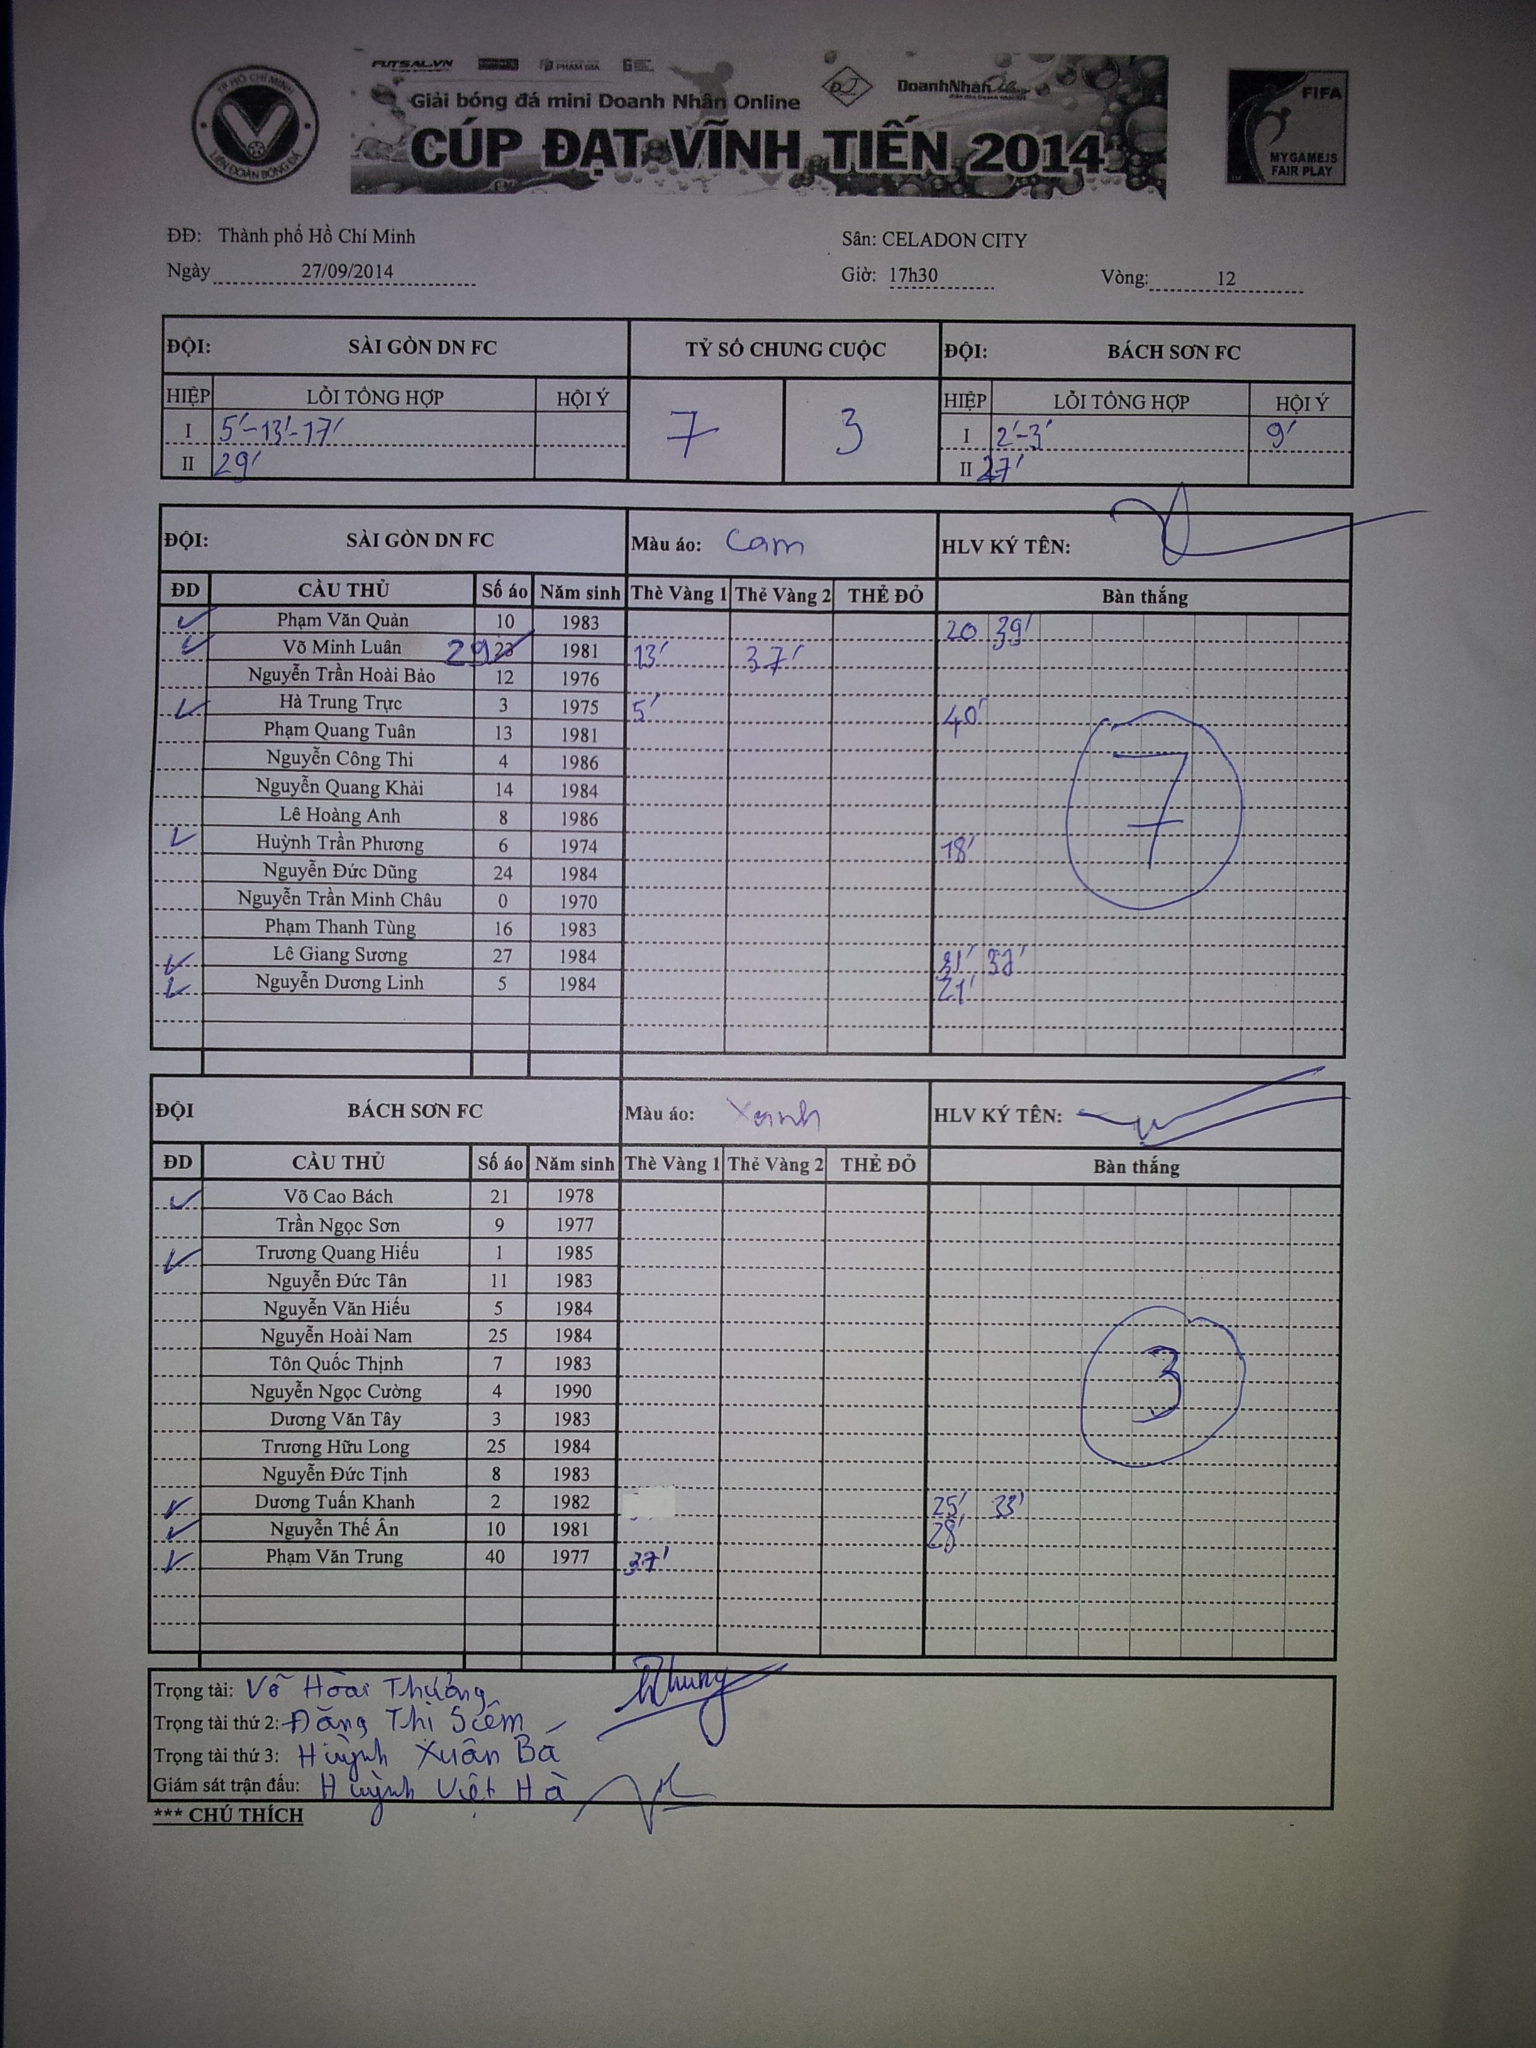 TP HỒ CHÍ MINH
LIÊN ĐOÀN BÓNG ĐÁ
FUTSAL.VN PHAM GIA
Giải bóng đá mini Doanh Nhân Online
DoanhNhân
CÚP ĐẠT VĨNH TIẾN 2014
FIFA
MY GAME IS
FAIR PLAY
ĐĐ: Thành phố Hồ Chí Minh Sân: CELADON CITY
Ngày 27/09/2014 Giờ: 17h30 Vòng: 12
ĐỘI: SÀI GÒN DN FC TỶ SỐ CHUNG CUỘC ĐỘI: BÁCH SƠN FC
HIỆP LỖI TỔNG HỢP HỘI Ý 7 3 HIỆP LỖI TỔNG HỢP HỘI Ý
I 5'-13'-17' I 2'-3' 9'
II 29' II 27'
ĐỘI: SÀI GÒN DN FC Màu áo: Cam HLV KÝ TÊN:
ĐD CẦU THỦ Số áo Năm sinh Thẻ Vàng 1 Thẻ Vàng 2 THẺ ĐỎ Bàn thắng
Phạm Văn Quản 10 1983 20 39'
Võ Minh Luân 29 23 1981 13' 37'
Nguyễn Trần Hoài Bảo 12 1976
Hà Trung Trực 3 1975 5' 40'
Phạm Quang Tuân 13 1981
Nguyễn Công Thi 4 1986
Nguyễn Quang Khải 14 1984
Lê Hoàng Anh 8 1986
Huỳnh Trần Phương 6 1974 18'
Nguyễn Đức Dũng 24 1984
Nguyễn Trần Minh Châu 0 1970
Phạm Thanh Tùng 16 1983
Lê Giang Sương 27 1984 31'
Nguyễn Dương Linh 5 1984 21'
7
ĐỘI BÁCH SƠN FC Màu áo: Xanh HLV KÝ TÊN:
ĐD CẦU THỦ Số áo Năm sinh Thẻ Vàng 1 Thẻ Vàng 2 THẺ ĐỎ Bàn thắng
Võ Cao Bách 21 1978
Trần Ngọc Sơn 9 1977
Trương Quang Hiếu 1 1985
Nguyễn Đức Tân 11 1983
Nguyễn Văn Hiếu 5 1984
Nguyễn Hoài Nam 25 1984
Tôn Quốc Thịnh 7 1983
Nguyễn Ngọc Cường 4 1990
Dương Văn Tây 3 1983
Trương Hữu Long 25 1984
Nguyễn Đức Tịnh 8 1983
Dương Tuấn Khanh 2 1982 25' 33'
Nguyễn Thế Ân 10 1981 28'
Phạm Văn Trung 40 1977 37'
3
Trọng tài: Võ Hoài Thưởng
Trọng tài thứ 2: Đặng Thị Siêm
Trọng tài thứ 3: Huỳnh Xuân Bá
Giám sát trận đấu: Huỳnh Việt Hà
*** CHÚ THÍCH